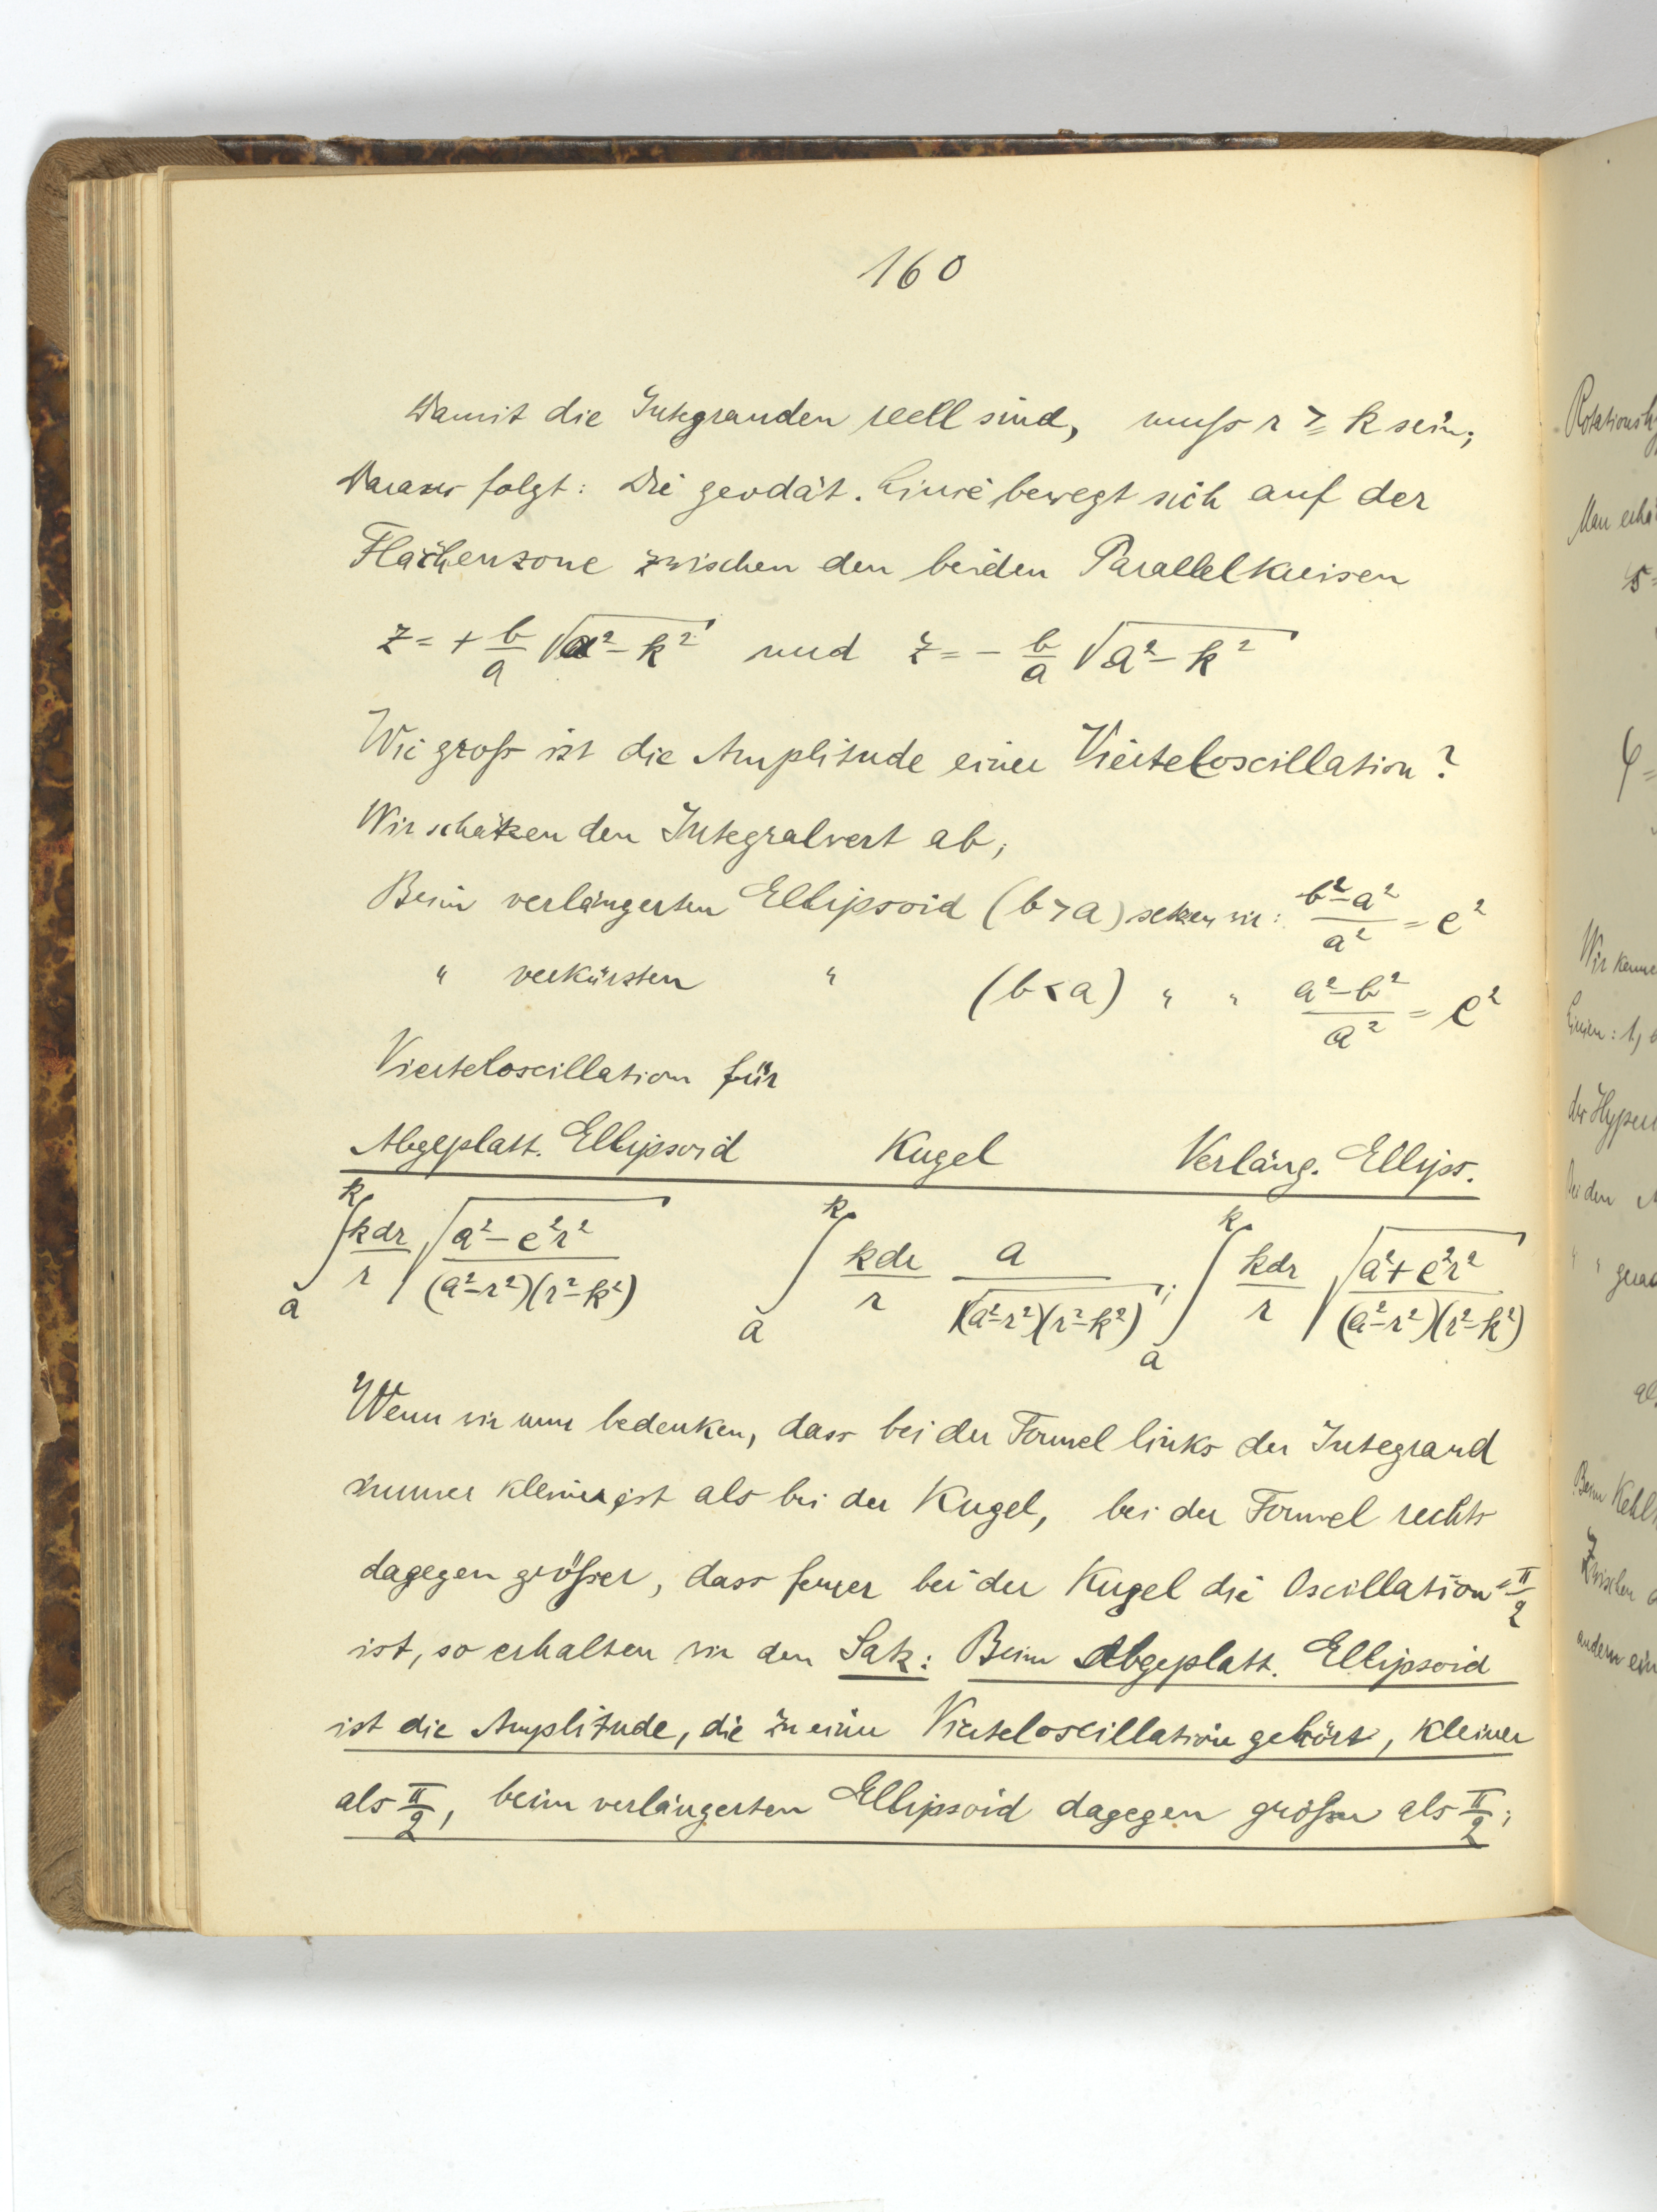 160
Damit die Integranden reell sind, muſs r ≥ k sein;
Daraus folgt: Die geodät. Linie bewegt sich auf der
Flächenzone zwischen den beiden Parallelkreisen
z = + b/a √(a² − k²) und z = − b/a √(a² − k²)
Wie groſs ist die Amplitude einer Vierteloscillation?
Wir schätzen den Integralwert ab;
Beim verlängerten Ellipsoid (b > a) setzen wir: (b² − a²)/a² = e²
" verkürzten " (b < a) " " (a² − b²)/a² = e²
Vierteloscillation für
Abgeplatt. Ellipsoid Kugel Verläng. Ellips.
∫ₐᵏ kdr/r √((a² − e²r²)/((a² − r²)(r² − k²))) ∫ₐᵏ kdr/r a/√((a² − r²)(r² − k²)); ∫ₐᵏ kdr/r √((a² + e²r²)/((a² − r²)(r² − k²)))
Wenn wir nun bedenken, dass bei der Formel links der Integrand
immer kleiner ist als bei der Kugel, bei der Formel rechts
dagegen gröſser, dass ferner bei der Kugel die Oscillation = π/2
ist, so erhalten wir den Satz: Beim Abgeplatt. Ellipsoid
ist die Amplitude, die zu einer Vierteloscillation gehört, kleiner
als π/2, beim verlängerten Ellipsoid dagegen gröſser als π/2;
Man
φ =
Wir
der
Bei den
Beim
Zwischen
andern ein